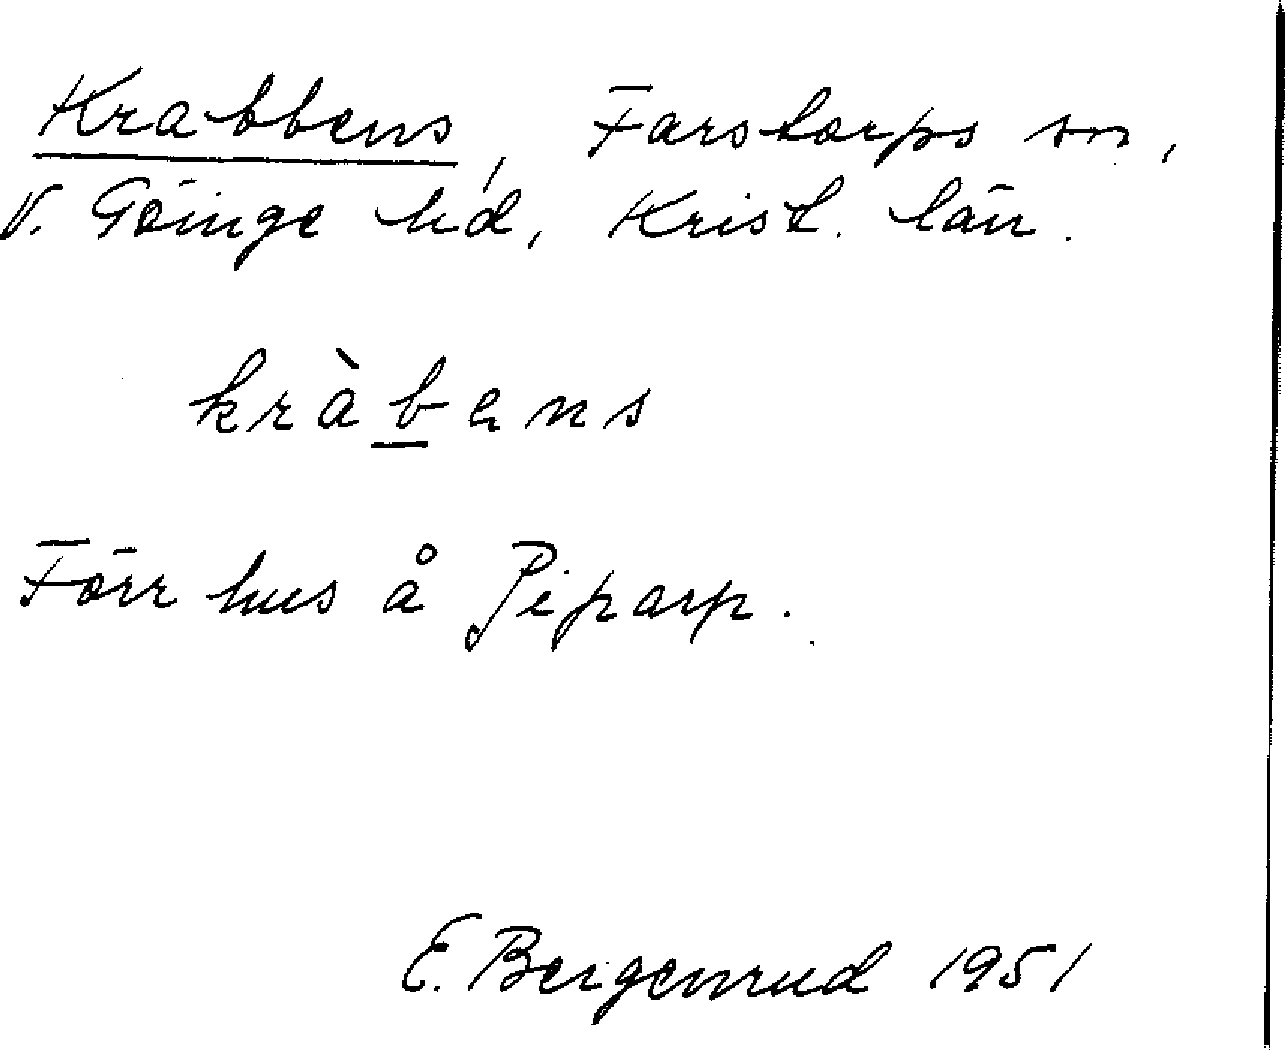 Krabbens, Farstorps sn,
V. Göinge hd, Krist. län.
kràbens
Förr hus å Piparp.
E. Bergenrud 1951